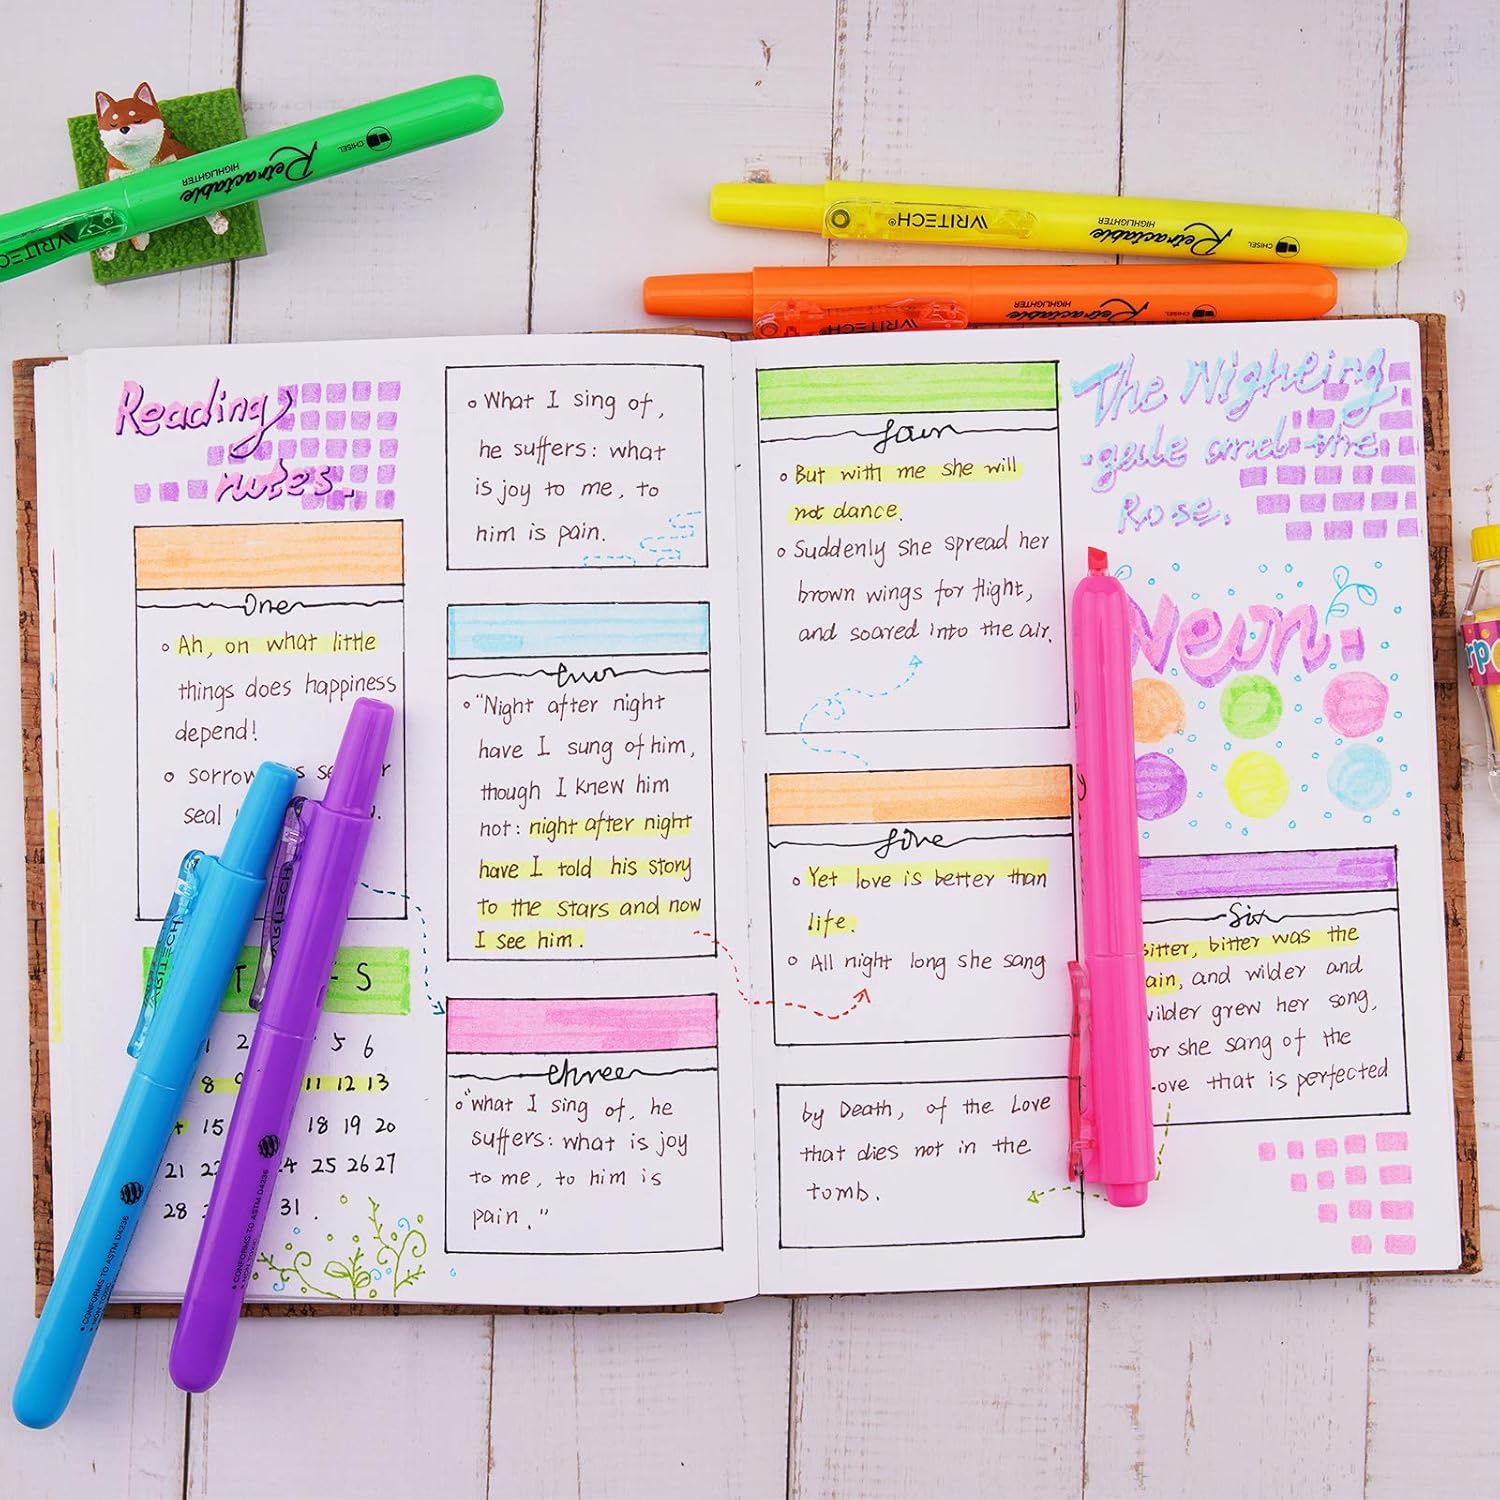 CHISEL
Retractable
HIGHLIGHTER
WRITECH
CHISEL
Retractable
HIGHLIGHTER
WRITECH®
CHISEL
Retractable
HIGHLIGHTER
WRITECH
Reading
notes.
One
Ah, on what little
things does happiness
depend!
sorrow
seal
T - S
1 2 5 6
8 9 11 12 13
15 18 19 20
21 24 25 26 27
28 31.
What I sing of,
he suffers: what
is joy to me, to
him is pain.
"Night after night
have I sung of him,
though I knew him
not: night after night
have I told his story
to the stars and now
I see him.
three
"what I sing of, he
suffers: what is joy
to me, to him is
pain."
four
But with me she will
not dance.
Suddenly she spread her
brown wings for flight,
and soared into the air.
five
Yet love is better than
life.
All night long she sang
by Death, of the Love
that dies not in the
tomb.
The Nigheing
-gale and the
Rose.
Neon:
Six
bitter, bitter was the
and wilder and
wilder grew her song,
for she sang of the
Love that is perfected
WRITECH
CONFORMS TO ASTM D4236
NON TOXIC
WRITECH
CONFORMS TO ASTM D4236
NON TOXIC